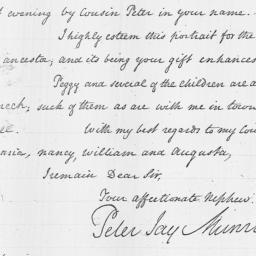 evening by Cousin Peter in your name.
I highly esteem this portrait for the
Ancestor; and its being your gift enhances
Peggy and several of the children are a
such of them as are with me in town
With my best regards to my Cou
nancy, william and augusta,
I remain Dear Sir,
Your affectionate Nephew.
Peter Jay Munro